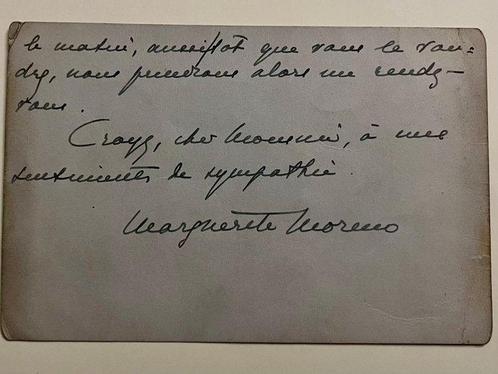 le matin, aussitôt que vous le vou=
drez, nous prendrons alors un rendez-
vous.
Croyez, cher Monsieur, à mes
sentiments de sympathie.
Marguerite Moreno